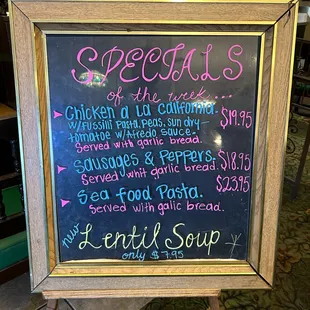 SPECIALS
of the week...
Chicken a la California. $19.95
w/Fussilli Pasta, Peas, sun dry-
tomatoe w/Afredo sauce.
Served with garlic bread.
Sausages & Peppers. $18.95
Served whit garlic bread.
Sea food Pasta. $23.95
Served with galic bread.
new Lentil Soup
only $7.95